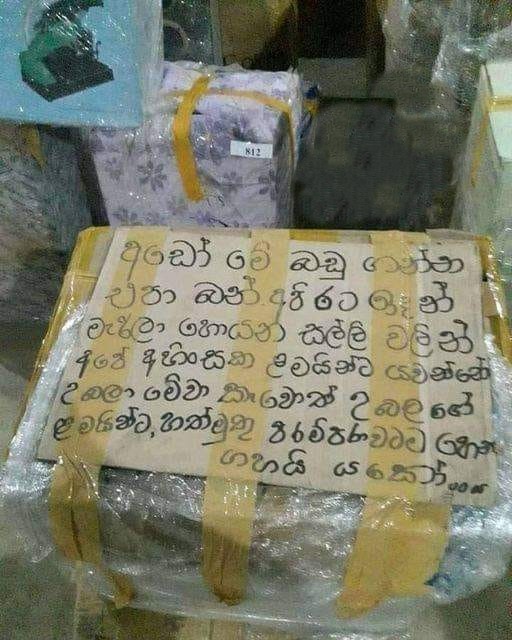 812
අඩෝ මේ බඩු ගන්න
එපා බන් අපි රට ඉඳන්
මැරිලා හොයන සල්ලි වලින්
අපේ අහිංසක ළමයින්ට යවන්නේ
උබලා මේවා කෑවොත් උබලගේ
ළමයින්ට, හත්මුතු පරම්පරාවටම හෙන
ගහයි යකෝ....